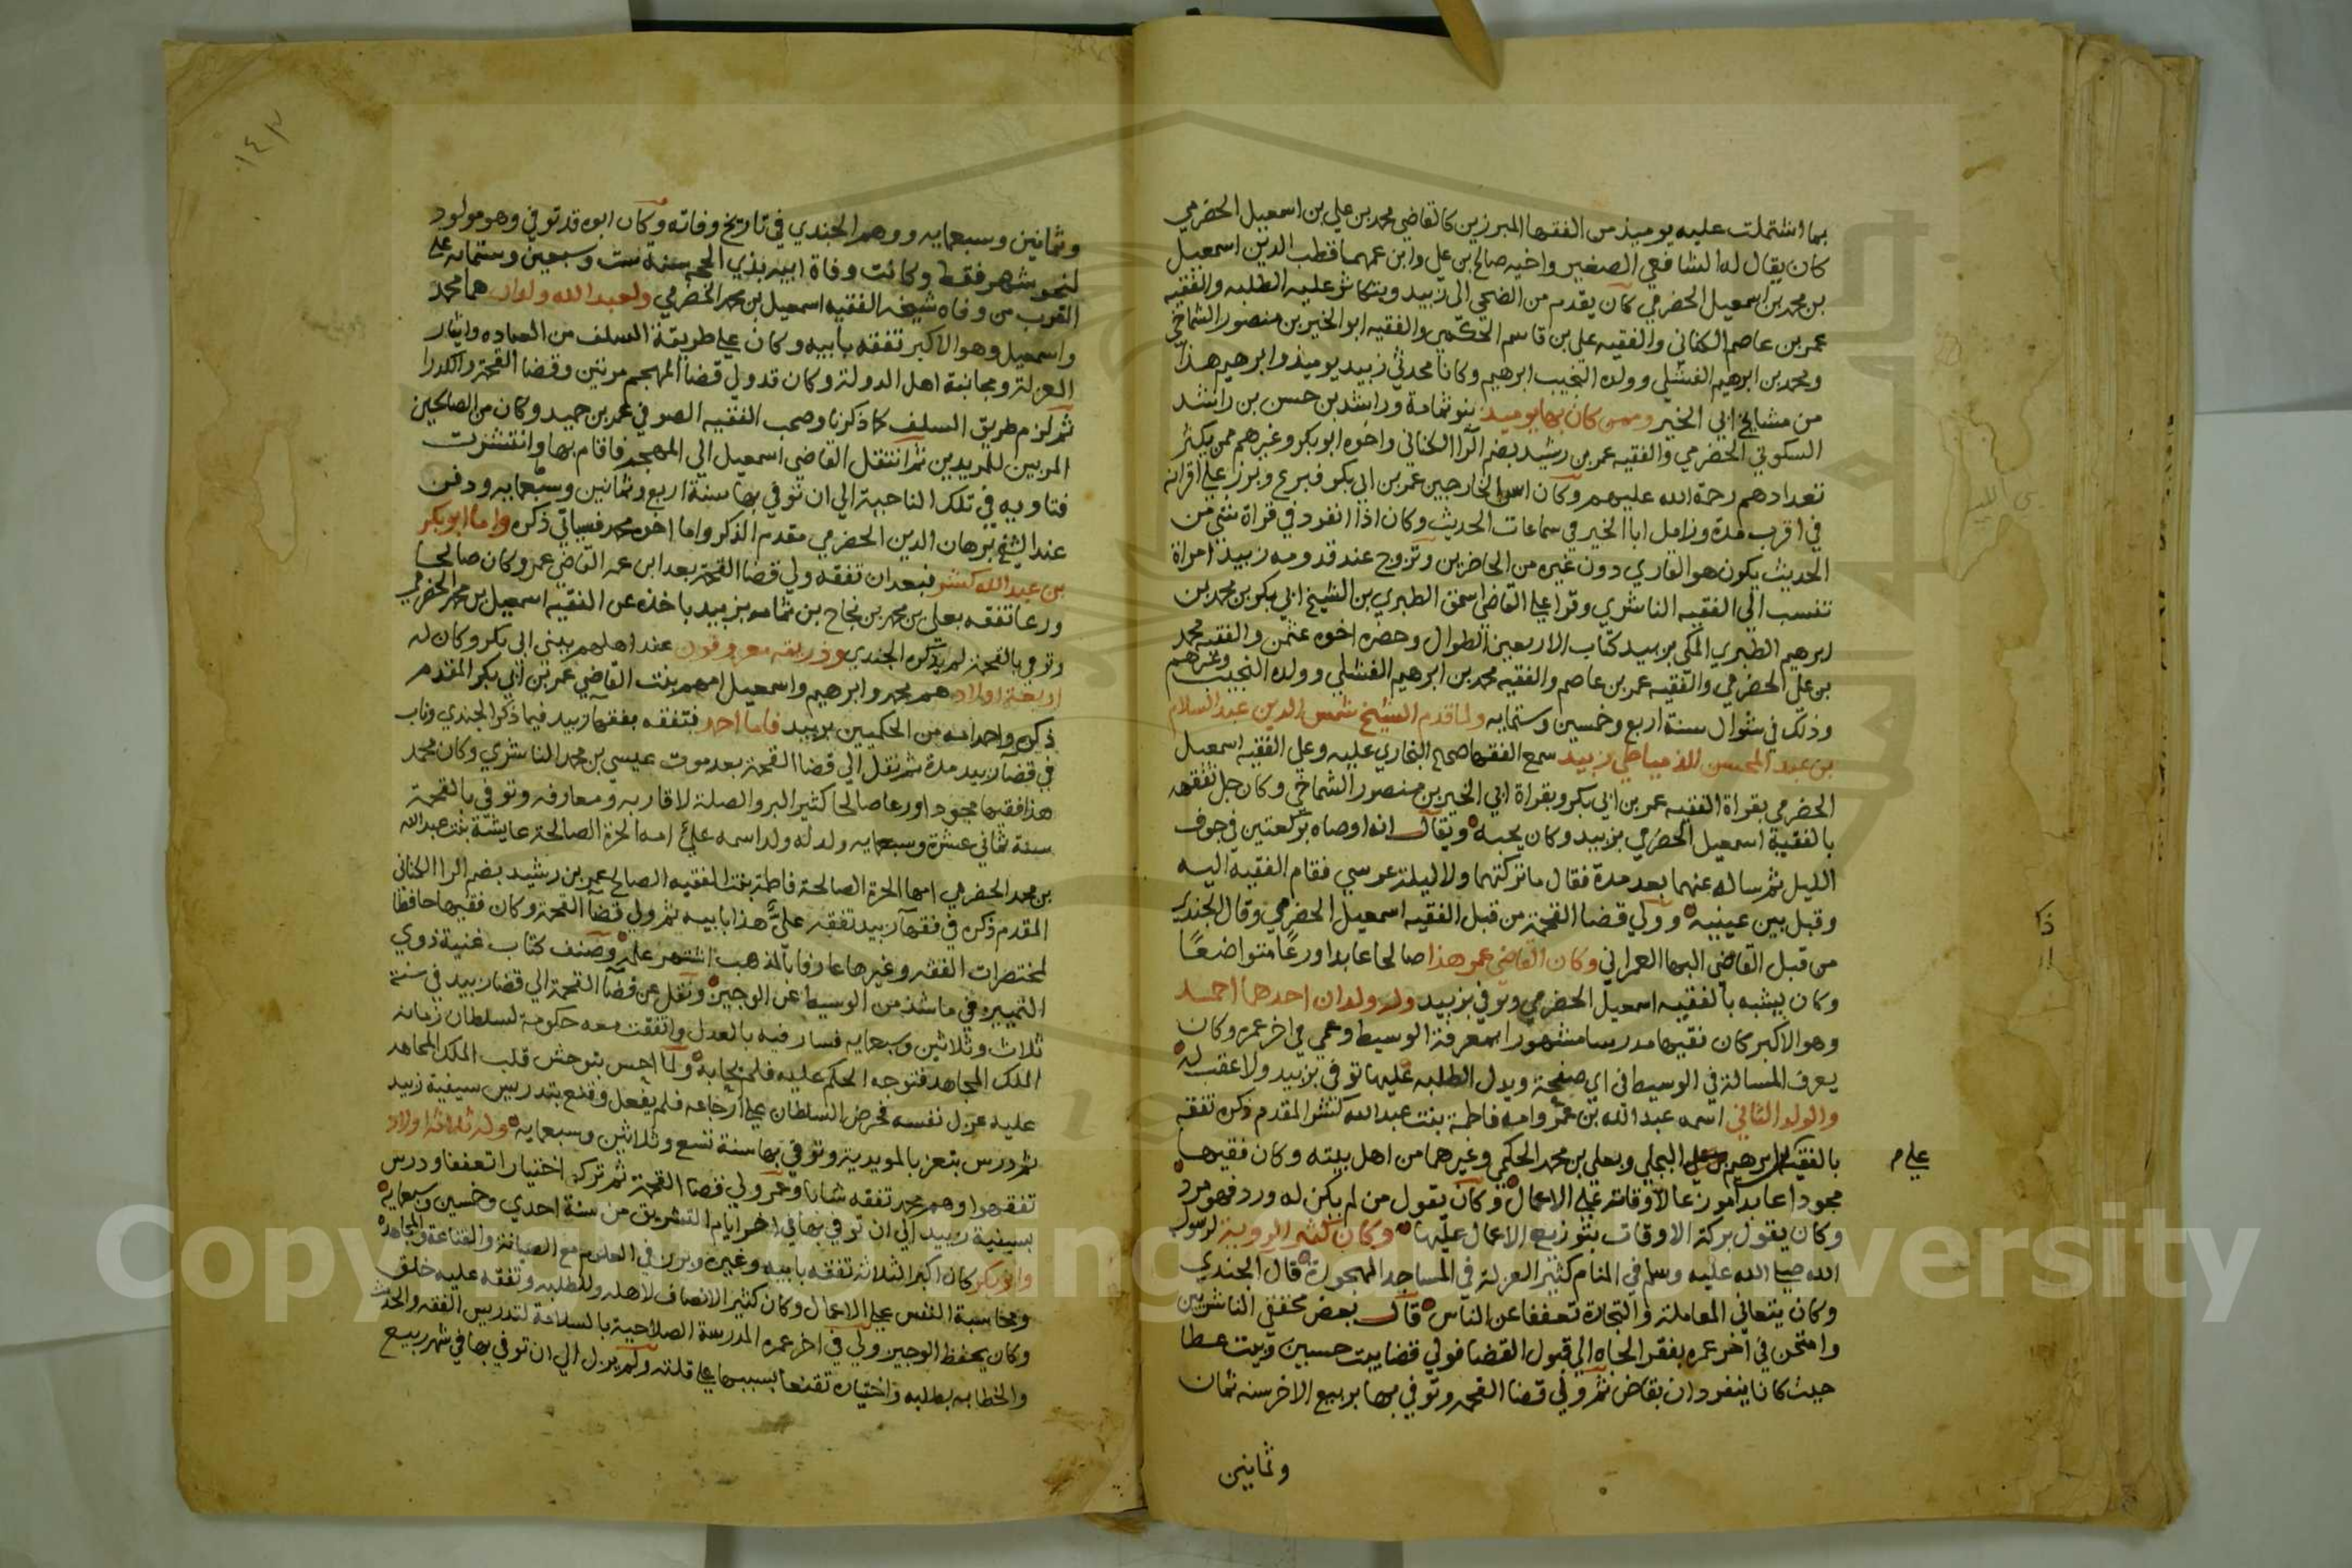 بما اشتملت عليه يوميذ من الفقها المبرزين كالقاضي محمد بن علي بن اسمعيل الحضرمي
كان يقال له الشافعي الصغير واخيه صالح بن علي وابن عمهما قطب الدين اسمعيل
بن محمد بن اسمعيل الحضرمي كان يقدم من الضحي الى زبيد ويتكاثر عليه الطلبه والفقيه
عمر بن عاصم الكناني والفقيه علي بن قاسم الحكمي والفقيه ابو الخير بن منصور الشماخي
ومحمد بن ابرهيم الفشلي وولده النجيب ابرهيم وكانا محدثي زبيد يوميذ وابرهيم هذا
من مشايخ ابي الخير وممن كان بها يوميذ بنو ثمامة وراشد بن حسن بن راشد
السكوني الحضرمي والفقيه عمر بن رشيد بضم الرا الكناني واخوه ابو بكر وغيرهم ممن يكثر
تعدادهم رحمة الله عليهم وكان اسن الخارجين عمر بن ابي بكر فبرع وبرز علي اقرانه
في اقرب مدة وزامل ابا الخير في سماعات الحديث وكان اذا انفرد في قراة شي من
الحديث يكون هو القاري دون غيره من الحاضرين وتزوج عند قدومه زبيد امراة
تنسب الي الفقيه الناشري وقرا علي القاضي اسحق الطبري بن الشيخ ابي بكر بن محمد بن
ابرهيم الطبري المكي بزبيد كتاب الاربعين الطوال وحضره اخوه عثمن والفقيه محمد
بن علي الحضرمي والفقيه عمر بن عاصم والفقيه محمد بن ابرهيم الفشلي وولده النجيب وغيرهم
وذلك في شوال سنة اربع وخمسين وستمايه ولما قدم الشيخ شمس الدين عبد السلام
بن عبد المحسن الدمياطي زبيد سمع الفقها صحيح البخاري عليه وعلي الفقيه اسمعيل
الحضرمي بقراة الفقيه عمر بن ابي بكر وبقراة ابي الخير بن منصور الشماخي وكان جل تفقهه
بالفقيه اسمعيل الحضرمي بزبيد وكان يحبه ويقال انه اوصاه بركعتين في جوف
الليل ثم ساله عنهما بعد مدة فقال ما تركتهما ولا ليلة عرسي فقام الفقيه اليه
وقبل بين عينيه وولي قضا القحمة من قبل الفقيه اسمعيل الحضرمي وقال الجندي
من قبل القاضي البها العمراني وكان القاضي عمر هذا صالحا عابدا ورعا متواضعا
وكان يشبه بالفقيه اسمعيل الحضرمي وتوفي بزبيد وله ولدان احدهما احمد
وهو الاكبر كان فقيها مدرسا مشهورا بمعرفة الوسيط وعمي في اخر عمره وكان
يعرف المسالة في الوسيط في اي صفحة ويدل الطلبه عليها توفي بزبيد ولا عقب له
والولد الثاني اسمه عبد الله بن عمر وامه فاطمة بنت عبد الله كنشو المقدم ذكره تفقه
بالفقيه ابرهيم بن علي البجلي وبعلي بن محمد الحكمي وغيرهما من اهل بيته وكان فقيها
علي م
مجودا عابدا موزعا لاوقاته علي الاعمال وكان يقول من لم يكن له ورد فهو مرد
وكان يقول بركة الاوقات بتوزيع الاعمال عليها وكان كثير الروية لرسول
الله صلى الله عليه وسلم في المنام كثير العزلة في المساجد المهجورة قال الجندي
وكان يتعاني المعاملة والتجارة تعففا عن الناس قال بعض محققي الناشريين
وامتحن في اخر عمره بفقر الجاه الي قبول القضا فولي قضا بيت حسين وبيت عطا
حيث كانا ينفردان بقاض ثم ولي قضا القحمه وتوفي بها بربيع الاخر سنه ثمان
وثمانين
١٤٣
وثمانين وسبعمايه ووهم الجندي في تاريخ وفاته وكان ابوه قد توفي وهو مولود
لنحو شهر فقط وكانت وفاة ابيه بذي الحجه سنة ست وسبعين وستمايه علي
القرب من وفاه شيخه الفقيه اسمعيل بن محمد الحضرمي ولعبد الله ولدان هما محمد
واسمعيل وهو الاكبر تفقه بابيه وكان علي طريقة السلف من العباده وايثار
العزلة ومجانبة اهل الدولة وكان قد ولي قضا المهجم مرتين وقضا القحمة والكدرا
ثم لزم طريق السلف كما ذكرنا وصحب الفقيه الصوفي عمر بن حميد وكان من الصالحين
المربين للمريدين ثم انتقل القاضي اسمعيل الي المهجم فاقام بها وانتشرت
فتاويه في تلك الناحية الي ان توفي بها سنة اربع وثمانين وسبعمايه ودفن
عند الشيخ برهان الدين الحضرمي مقدم الذكر واما اخوه محمد فسياتي ذكره واما ابو بكر
بن عبد الله كنشو فبعد ان تفقه ولي قضا القحمة بعد ابن عمه القاضي عمر وكان صالحا
ورعا تفقه بعلي بن محمد بن نجاح بن ثمامه بزبيد باخذه عن الفقيه اسمعيل بن محمد الحضرمي
وتوفي بالقحمة لم يذكره الجندي وذريته معروفون عند اهلهم ببني ابي بكر وكان له
اربعة اولاد هم محمد وابرهيم واسمعيل امهم بنت القاضي عمر بن ابي بكر المقدم
ذكره واحد امه من الحكميين بزبيد فاما احمد فتفقه بفقها زبيد فيما ذكر الجندي وناب
في قضا زبيد مدة ثم نقل الي قضا القحمة بعد موت عيسى بن محمد الناشري وكان محمد
هذا فقيها مجودا ورعا صالحا كثير البر والصلة لاقاربه ومعارفه وتوفي بالقحمة
سنة ثماني عشرة وسبعمايه ولد له ولد اسمه علي امه الحرة الصالحة عايشة بنت عبد الله
بن محمد الحضرمي امها الحرة الصالحة فاطمة بنت الفقيه الصالح عمر بن رشيد بضم الرا الكناني
المقدم ذكره في فقها زبيد تفقه علي هذا بابيه ثم ولي قضا القحمة وكان فقيها حافظا
لمختصرات الفقه وغيرها عارفا بالمذهب اشتهر علمه وصنف كتاب غنية ذوي
التمييز في ما شذ من الوسيط عن الوجيز ونقل عن قضا القحمة الي قضا زبيد في سنة
ثلاث وثلاثين وسبعمايه فسار فيه بالعدل واتفقت معه حكومة لسلطان زمانه
الملك المجاهد فتوجه الحكم عليه فلم يحابه ولما احس بتوحش قلب الملك المجاهد
عليه عزل نفسه فحرض السلطان علي ارجاعه فلم يفعل وقنع بتدريس سيفية زبيد
ثم درس بتعز بالمويدية وتوفي بها سنة تسع وثلاثين وسبعمايه وله ثلاثة اولاد
تفقهوا وهم محمد تفقه شابا وعمر ولي قضا القحمة ثم تركه اختيارا تعففا ودرس
بسيفية زبيد الي ان توفي بها في اخر ايام التشريق من سنة احدي وخمسين وسبعمايه
وابو بكر كان اكبر الثلاثه تفقه بابيه وغيره وبرز في العلوم مع الصيانة والقناعة والمجاهدة
ومحاسبة النفس علي الاعمال وكان كثير الانصاف لاهله وللطلبه وتفقه عليه خلق
وكان يحفظ الوجيز ولي في اخر عمره المدرسة الصلاحية بالسلامة لتدريس الفقه والحديث
والخطابه بطلبه واختياره تقنعا بسببها علي قلته ولم يزل الي ان توفي بها في شهر ربيع